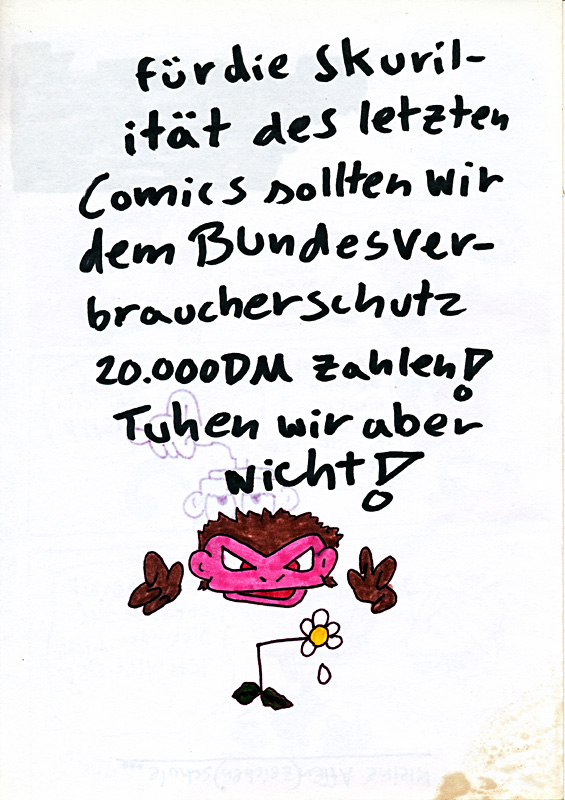 für die Skuril-
ität des letzten
Comics sollten wir
dem Bundesver-
braucherschutz
20.000DM zahlen!
Tuhen wir aber
nicht!